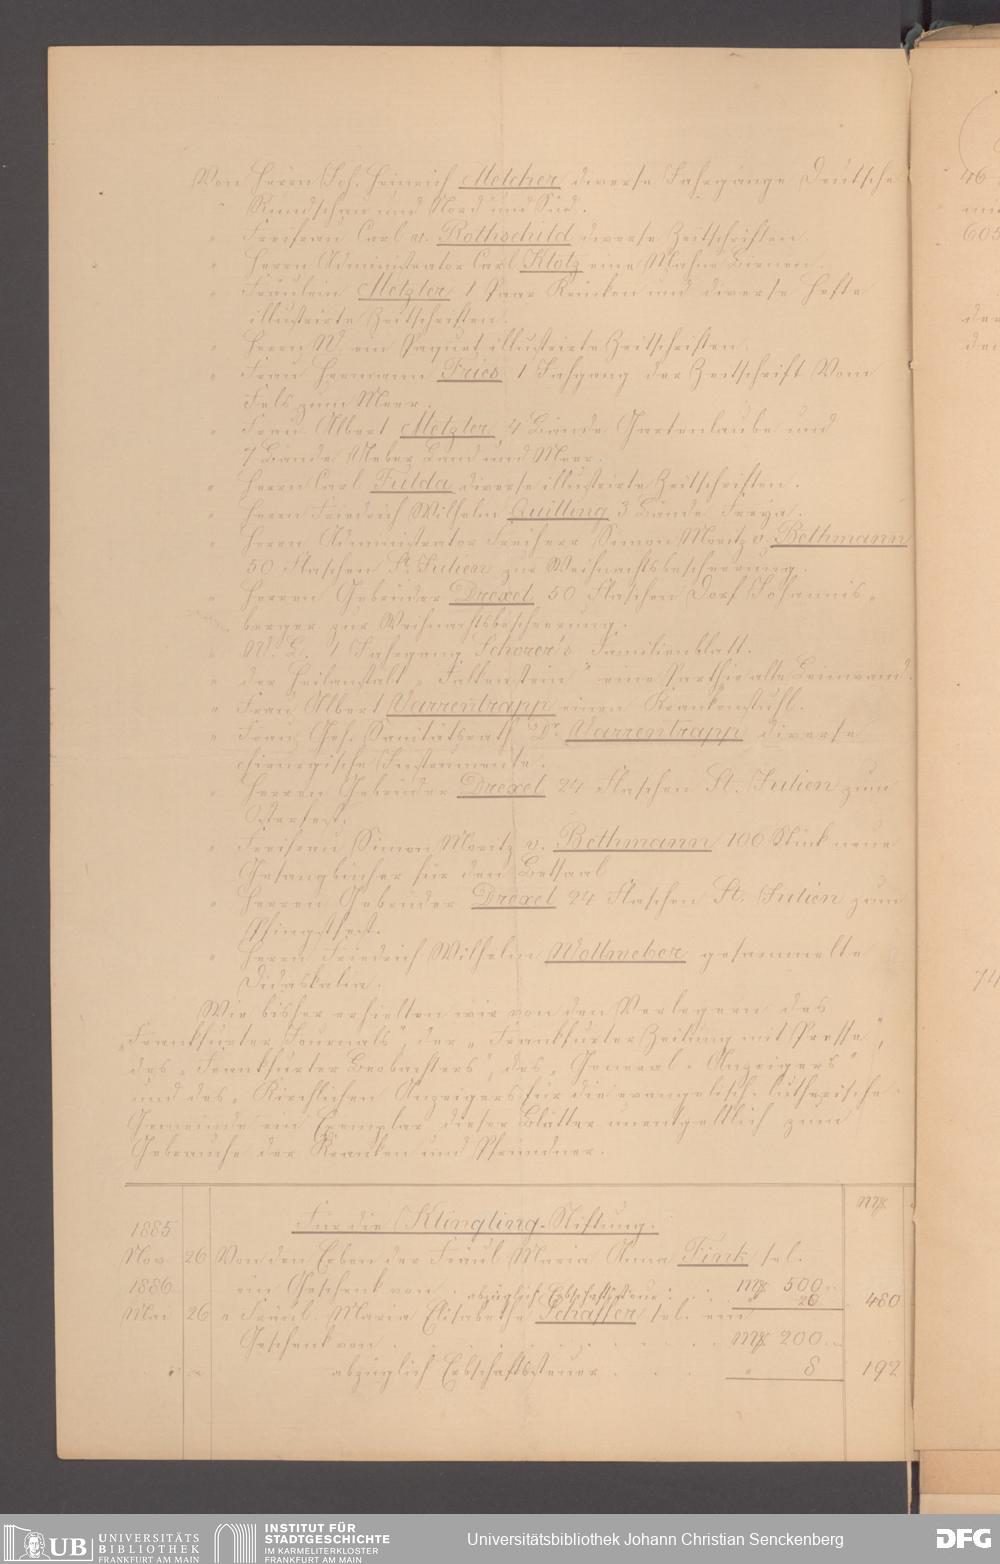 Von Herrn Joh. Heinrich Melcher diverse Jahrgänge Deutsche
Rundschau und Nord und Süd.
" Freifrau Carl v. Rothschild diverse Zeitschriften.
" Herrn Administrator Carl Klotz eine Mahne Birnen.
" Fräulein Metzler 1 Paar Krücken und diverse Hefte
illustrirte Zeitschriften.
" Herrn W. ein Paquet illustrirte Zeitschriften.
" Frau Hermann Fries 1 Jahgang der Zeitschrift Vom
Fels zum Meer.
" Frau Albert Metzler 4 Bände Gartenlaube und
7 Bände Ueber Land und Meer.
" Herrn Carl Fulda diverse illustrirte Zeitschriften.
" Herrn Friedrich Wilhelm Quilling 3 Bände Freya.
" Herrn Administrator Freiherr Simon Moritz v. Bethmann
50 Flaschen St. Julien zur Weihnachtsbescheerung.
" Herren Gebrüder Drexel 50 Flaschen Dorf Johannis-
berger zur Weihnachtsbescheerung.
" W. E. 1 Jahrgang Schorer's Familienblatt.
" der Heilanstalt „Falkenstein" eine Parthie alte Leinwand.
" Frau Albert Varrentrapp einen Krankenstuhl.
" Frau Geh. Sanitätsrath Dr. Varrentrapp diverse
chirurgische Instrumente.
" Herren Gebrüder Drexel 24 Flaschen St. Julien zum
Osterfest.
" Freifrau Simon Moritz v. Bethmann 100 Stück neue
Gesangbücher für den Betsaal
" Herren Gebrüder Drexel 24 Flaschen St. Julien zum
Pfingstfest.
" Herrn Friedrich Wilhelm Wollweber gesammelte
Didaskalia.
Wie bisher erhielten wir von den Verlegern des
„Frankfurter Journals", der „Frankfurter Zeitung mit Presse",
des „Frankfurter Beobachters", des „General-Anzeigers"
und des „Kirchlichen Anzeigers für die evangelisch-lutherische
Gemeinde" ein Exemplar dieser Blätter unentgeltlich zum
Gebrauche der Kranken und Pfründner.
Mk
Für die Klingling-Stiftung.
1885
Nov. 26 Von den Erben der Fräul. Maria Anna Fink sel.
1886 ein Geschenk von Mk 500.–
abzüglich Erbschaftssteuer " 20 480
Mai 26 " Fräul. Maria Elisabethe Schaffer sel. ein
Geschenk von Mk 200.–
abzüglich Erbschaftssteuer " 8 192
46
605
74
UB UNIVERSITÄTS
BIBLIOTHEK
FRANKFURT AM MAIN
INSTITUT FÜR
STADTGESCHICHTE
IM KARMELITERKLOSTER
FRANKFURT AM MAIN
Universitätsbibliothek Johann Christian Senckenberg
DFG